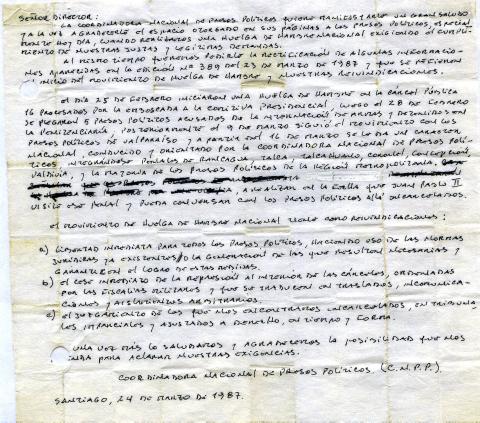 SEÑOR DIRECTOR:
LA COORDINADORA NACIONAL DE PRESOS POLÍTICOS QUIERE MANIFESTARLE UN GRAN SALUDO
Y A LA VEZ AGRADECERLE EL ESPACIO OTORGADO EN SUS PÁGINAS A LOS PRESOS POLÍTICOS, ESPECIAL
MENTE HOY DÍA, CUANDO REALIZAMOS UNA HUELGA DE HAMBRE NACIONAL EXIGIENDO EL CUMPLI-
MIENTO DE NUESTRAS JUSTAS Y LEGÍTIMAS DEMANDAS.
AL MISMO TIEMPO QUEREMOS PEDIRLE LA RECTIFICACIÓN DE ALGUNAS INFORMACIO-
NES APARECIDAS EN LA EDICIÓN Nº 389 DEL 23 DE MARZO DE 1987 Y QUE SE REFIEREN
AL INICIO DEL MOVIMIENTO DE HUELGA DE HAMBRE Y NUESTRAS REIVINDICACIONES.
EL DÍA 25 DE FEBRERO INICIARON UNA HUELGA DE HAMBRE EN LA CÁRCEL PÚBLICA
16 PROCESADOS POR LA EMBOSCADA A LA COMITIVA PRESIDENCIAL, LUEGO EL 28 DE FEBRERO
SE PLEGARON 5 PRESOS POLÍTICOS ACUSADOS DE LA INTERNACIÓN DE ARMAS Y DETENIDOS EN
LA PENITENCIARÍA, POSTERIORMENTE EL 9 DE MARZO SIGUIÓ EL MOVIMIENTO CON LOS
PRESOS POLÍTICOS DE VALPARAÍSO Y A PARTIR DEL 16 DE MARZO SE LE DA UN CARÁCTER
NACIONAL, CONDUCIDO Y ORIENTADO POR LA COORDINADORA NACIONAL DE PRESOS POLÍ-
TICOS, INTEGRÁNDOSE PENALES DE RANCAGUA, TALCA, TALCAHUANO, CORONEL, CONCEPCIÓN,
VALDIVIA, Y LA MAYORÍA DE LOS PRESOS POLÍTICOS DE LA REGIÓN METROPOLITANA.
A REALIZAR EN LA CALLE QUE JUAN PABLO II
VISITE ESE PENAL Y PUEDA CONVERSAR CON LOS PRESOS POLÍTICOS ALLÍ ENCARCELADOS.
EL MOVIMIENTO DE HUELGA DE HAMBRE NACIONAL TIENE COMO REIVINDICACIONES:
a) LIBERTAD INMEDIATA PARA TODOS LOS PRESOS POLÍTICOS, HACIENDO USO DE LAS NORMAS
JURÍDICAS YA EXISTENTES O LA GENERACIÓN DE LAS QUE RESULTEN NECESARIAS Y
GARANTICEN EL LOGRO DE ESTAS MEDIDAS.
b) EL CESE INMEDIATO DE LA REPRESIÓN AL INTERIOR DE LAS CÁRCELES, ORDENADAS
POR LAS FISCALÍAS MILITARES Y QUE SE TRADUCEN EN TRASLADOS, INCOMUNICA-
CIONES Y AISLACIONES ARBITRARIOS.
c) EL JUZGAMIENTO DE LOS QUE NOS ENCONTRAMOS ENCARCELADOS, EN TRIBUNA-
LES IMPARCIALES Y AJUSTADOS A DERECHO, EN TIEMPO Y FORMA.
UNA VEZ MÁS LO SALUDAMOS Y AGRADECEMOS LA POSIBILIDAD QUE NOS
BRINDA PARA ACLARAR NUESTRAS EXIGENCIAS.
COORDINADORA NACIONAL DE PRESOS POLÍTICOS. (C.N.P.P.).
SANTIAGO, 24 DE MARZO DE 1987.